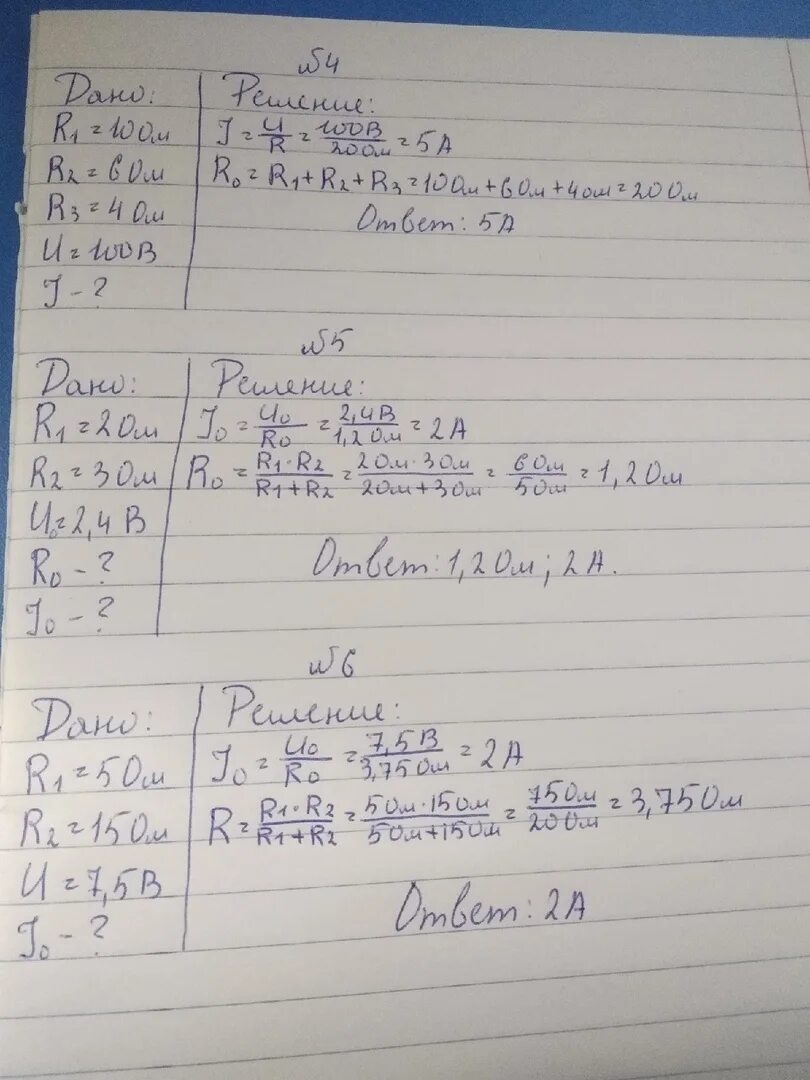 №4
Дано:
R1 = 10 Ом
R2 = 6 Ом
R3 = 4 Ом
U = 100 В
I - ?
Решение:
I = U/R = 100В/20 Ом = 5 А
R0 = R1 + R2 + R3 = 10 Ом + 6 Ом + 4 Ом = 20 Ом
Ответ: 5А
№5
Дано:
R1 = 2 Ом
R2 = 3 Ом
U0 = 2,4 В
R0 - ?
I0 - ?
Решение:
I0 = U0/R0 = 2,4В/1,2 Ом = 2 А
R0 = R1·R2/R1+R2 = 2 Ом · 3 Ом/2 Ом + 3 Ом = 6 Ом/5 Ом = 1,2 Ом
Ответ: 1,2 Ом; 2 А.
№6
Дано:
R1 = 5 Ом
R2 = 15 Ом
U = 7,5 В
I0 - ?
Решение:
I0 = U0/R0 = 7,5 В/3,75 Ом = 2 А
R = R1·R2/R1+R2 = 5 Ом · 15 Ом/5 Ом + 15 Ом = 75 Ом/20 Ом = 3,75 Ом
Ответ: 2 А